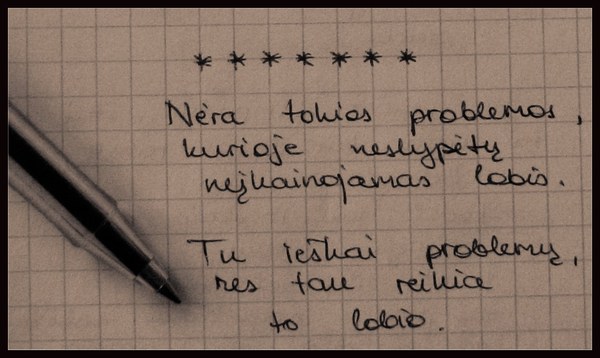 * * * * * * *
Nėra tokios problemos,
kurioje neslypėtų
neįkainojamas lobis.
Tu ieškai problemų,
nes tau reikia
to lobio.